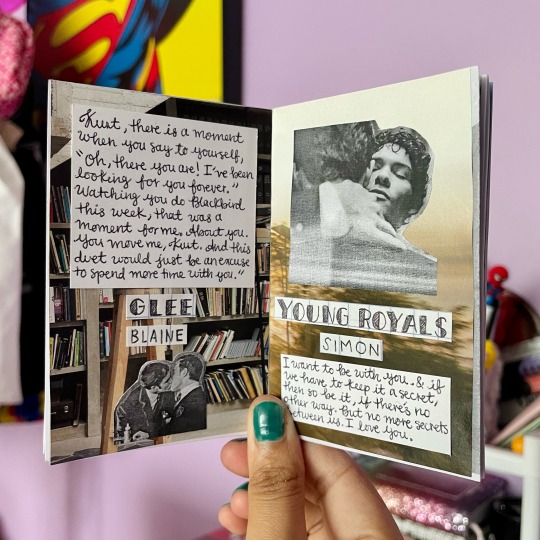 Kurt, there is a moment
when you say to yourself,
"Oh, there you are! I've been
looking for you forever."
Watching you do Blackbird
this week, that was a
moment for me. About you.
You move me, Kurt. And this
duet would just be an excuse
to spend more time with you."
GLEE
BLAINE
YOUNG ROYALS
SIMON
I want to be with you. & if
we have to keep it a secret,
then so be it, if there's no
other way. But no more secrets
between us. I love you.